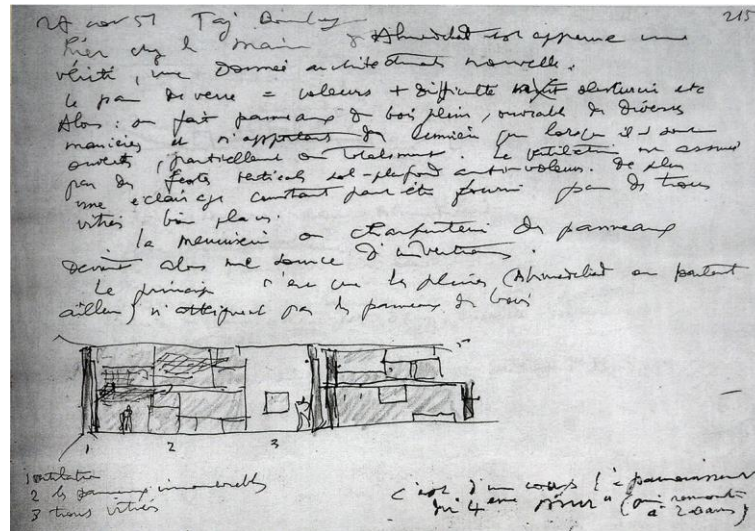 27 nov 51 Taj Bombay 215
Hier chez le Maire d'Ahmedabad est apparue une
vérité, une donnée architecturale nouvelle.
Le pan de verre = voleurs + difficulté obscurcir etc
Alors : on fait panneaux de bois pleins, ouvrables de diverses
manières et n'apportant de lumière que lorsqu'ils sont
ouverts, partiellement ou totalement. La ventilation est assurée
par des fentes verticales sol-plafond anti-voleurs. De plus
une éclairage constant peut être fourni par des trous
vitrés bien placés.
La menuiserie ou charpenterie de panneaux
devient alors une source d'inventions.
Le principe est que les pluies (Ahmedabad ou partout
ailleurs) n'atteignent pas les panneaux de bois
1 2 3
1 ventilation
2 les panneaux innombrables
3 trous vitrés
c'est d'un coup l'épanouissement
du 4ème mur" (qui remonte
à 20 ans)